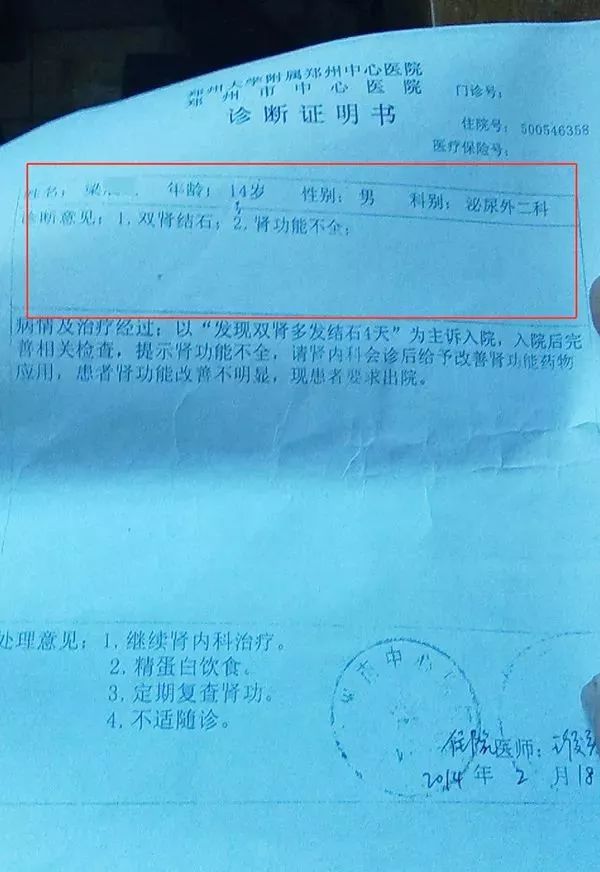 郑州大学附属郑州中心医院
郑州市中心医院 门诊号:
诊断证明书 住院号: 500546358
医疗保险号:
姓名: 梁 年龄: 14岁 性别: 男 科别: 泌尿外二科
诊断意见: 1. 双肾结石; 2. 肾功能不全;
病情及治疗经过: 以“发现双肾多发结石4天”为主诉入院, 入院后完
善相关检查, 提示肾功能不全, 请肾内科会诊后给予改善肾功能药物
应用, 患者肾功能改善不明显, 现患者要求出院。
处理意见: 1. 继续肾内科治疗。
2. 精蛋白饮食。
3. 定期复查肾功。
4. 不适随诊。
市中心
住院医师:
2014 年 2 月 18